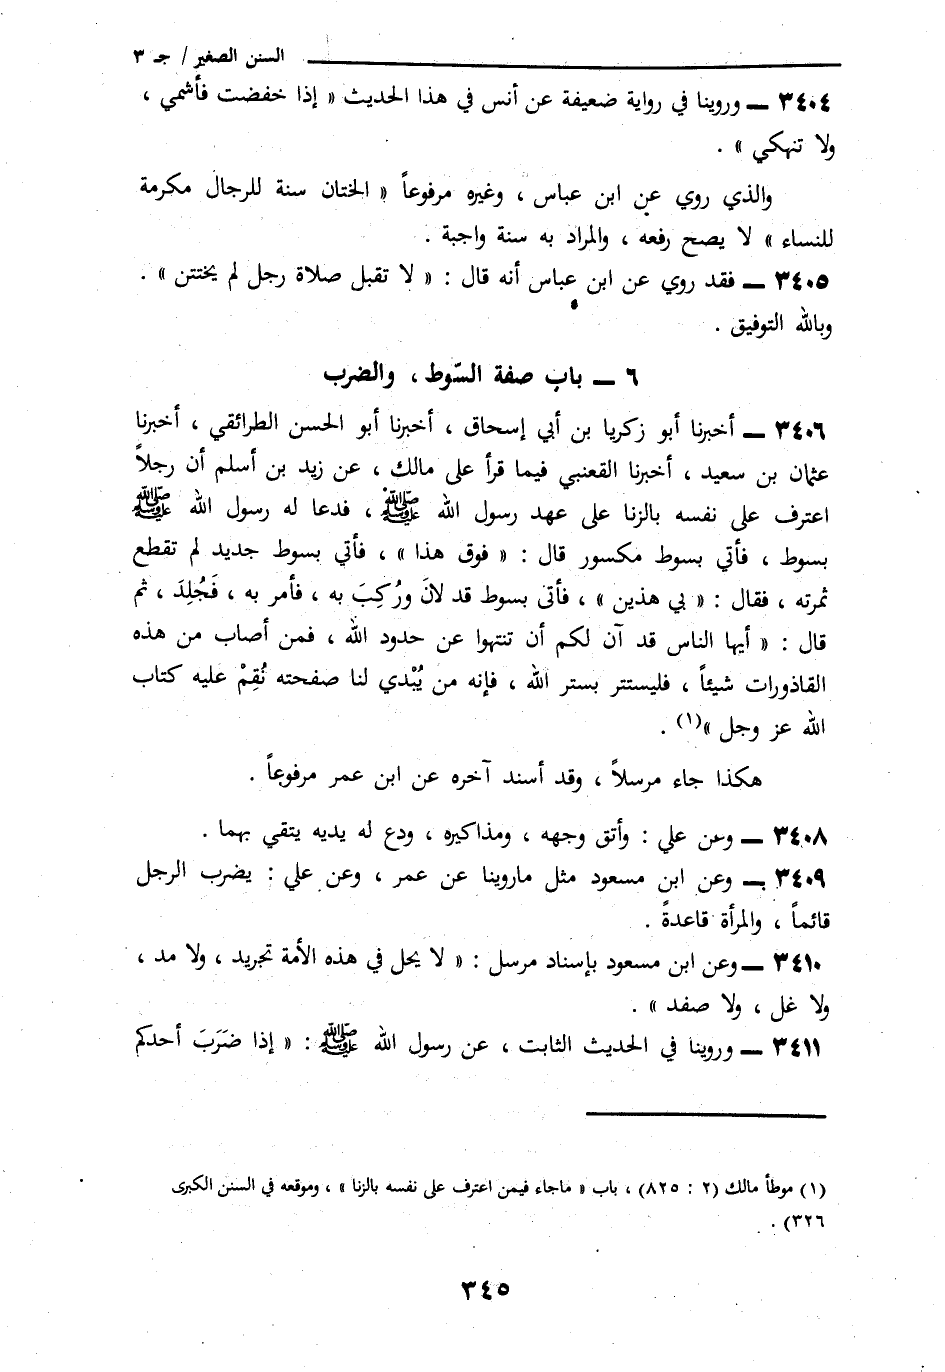 السنن الصغير / جـ ٣
٣٤٠٤ ــ وروينا في رواية ضعيفة عن أنس في هذا الحديث « إذا خفضت فأشمي ،
ولا تنهكي » .
والذي روي عن ابن عباس ، وغيره مرفوعاً « الختان سنة للرجال مكرمة
للنساء » لا يصح رفعه ، والمراد به سنة واجبة .
٣٤٠٥ ــ فقد روي عن ابن عباس أنه قال : « لا تقبل صلاة رجل لم يختتن » .
وبالله التوفيق .
٦ ــ باب صفة السّوط ، والضرب
٣٤٠٦ ــ أخبرنا أبو زكريا بن أبي إسحاق ، أخبرنا أبو الحسن الطرائقي ، أخبرنا
عثمان بن سعيد ، أخبرنا القعنبي فيما قرأ على مالك ، عن زيد بن أسلم أن رجلاً
اعترف على نفسه بالزنا على عهد رسول الله ﷺ ، فدعا له رسول الله ﷺ
بسوط ، فأتي بسوط مكسور قال : « فوق هذا » ، فأتي بسوط جديد لم تقطع
ثمرته ، فقال : « بي هذين » ، فأتى بسوط قد لانَ ورُكِبَ به ، فأمر به ، فَجُلِدَ ، ثم
قال : « أيها الناس قد آن لكم أن تنتهوا عن حدود الله ، فمن أصاب من هذه
القاذورات شيئاً ، فليستتر بستر الله ، فإنه من يُبْدي لنا صفحته نُقِمْ عليه كتاب
الله عز وجل »(١) .
هكذا جاء مرسلاً ، وقد أسند آخره عن ابن عمر مرفوعاً .
٣٤٠٨ ــ وعن علي : وأتق وجهه ، ومذاكيره ، ودع له يديه يتقي بهما .
٣٤٠٩ ــ وعن ابن مسعود مثل ماروينا عن عمر ، وعن علي : يضرب الرجل
قائماً ، والمرأة قاعدةً .
٣٤١٠ ــ وعن ابن مسعود بإسناد مرسل : « لا يحل في هذه الأمة تجريد ، ولا مد ،
ولا غل ، ولا صفد » .
٣٤١١ ــ وروينا في الحديث الثابت ، عن رسول الله ﷺ : « إذا ضَرَبَ أحدكم
(١) موطأ مالك (٢ : ٨٢٥) ، باب « ماجاء فيمن اعترف على نفسه بالزنا » ، وموقعه في السنن الكبرى
٣٢٦) .
٣٤٥